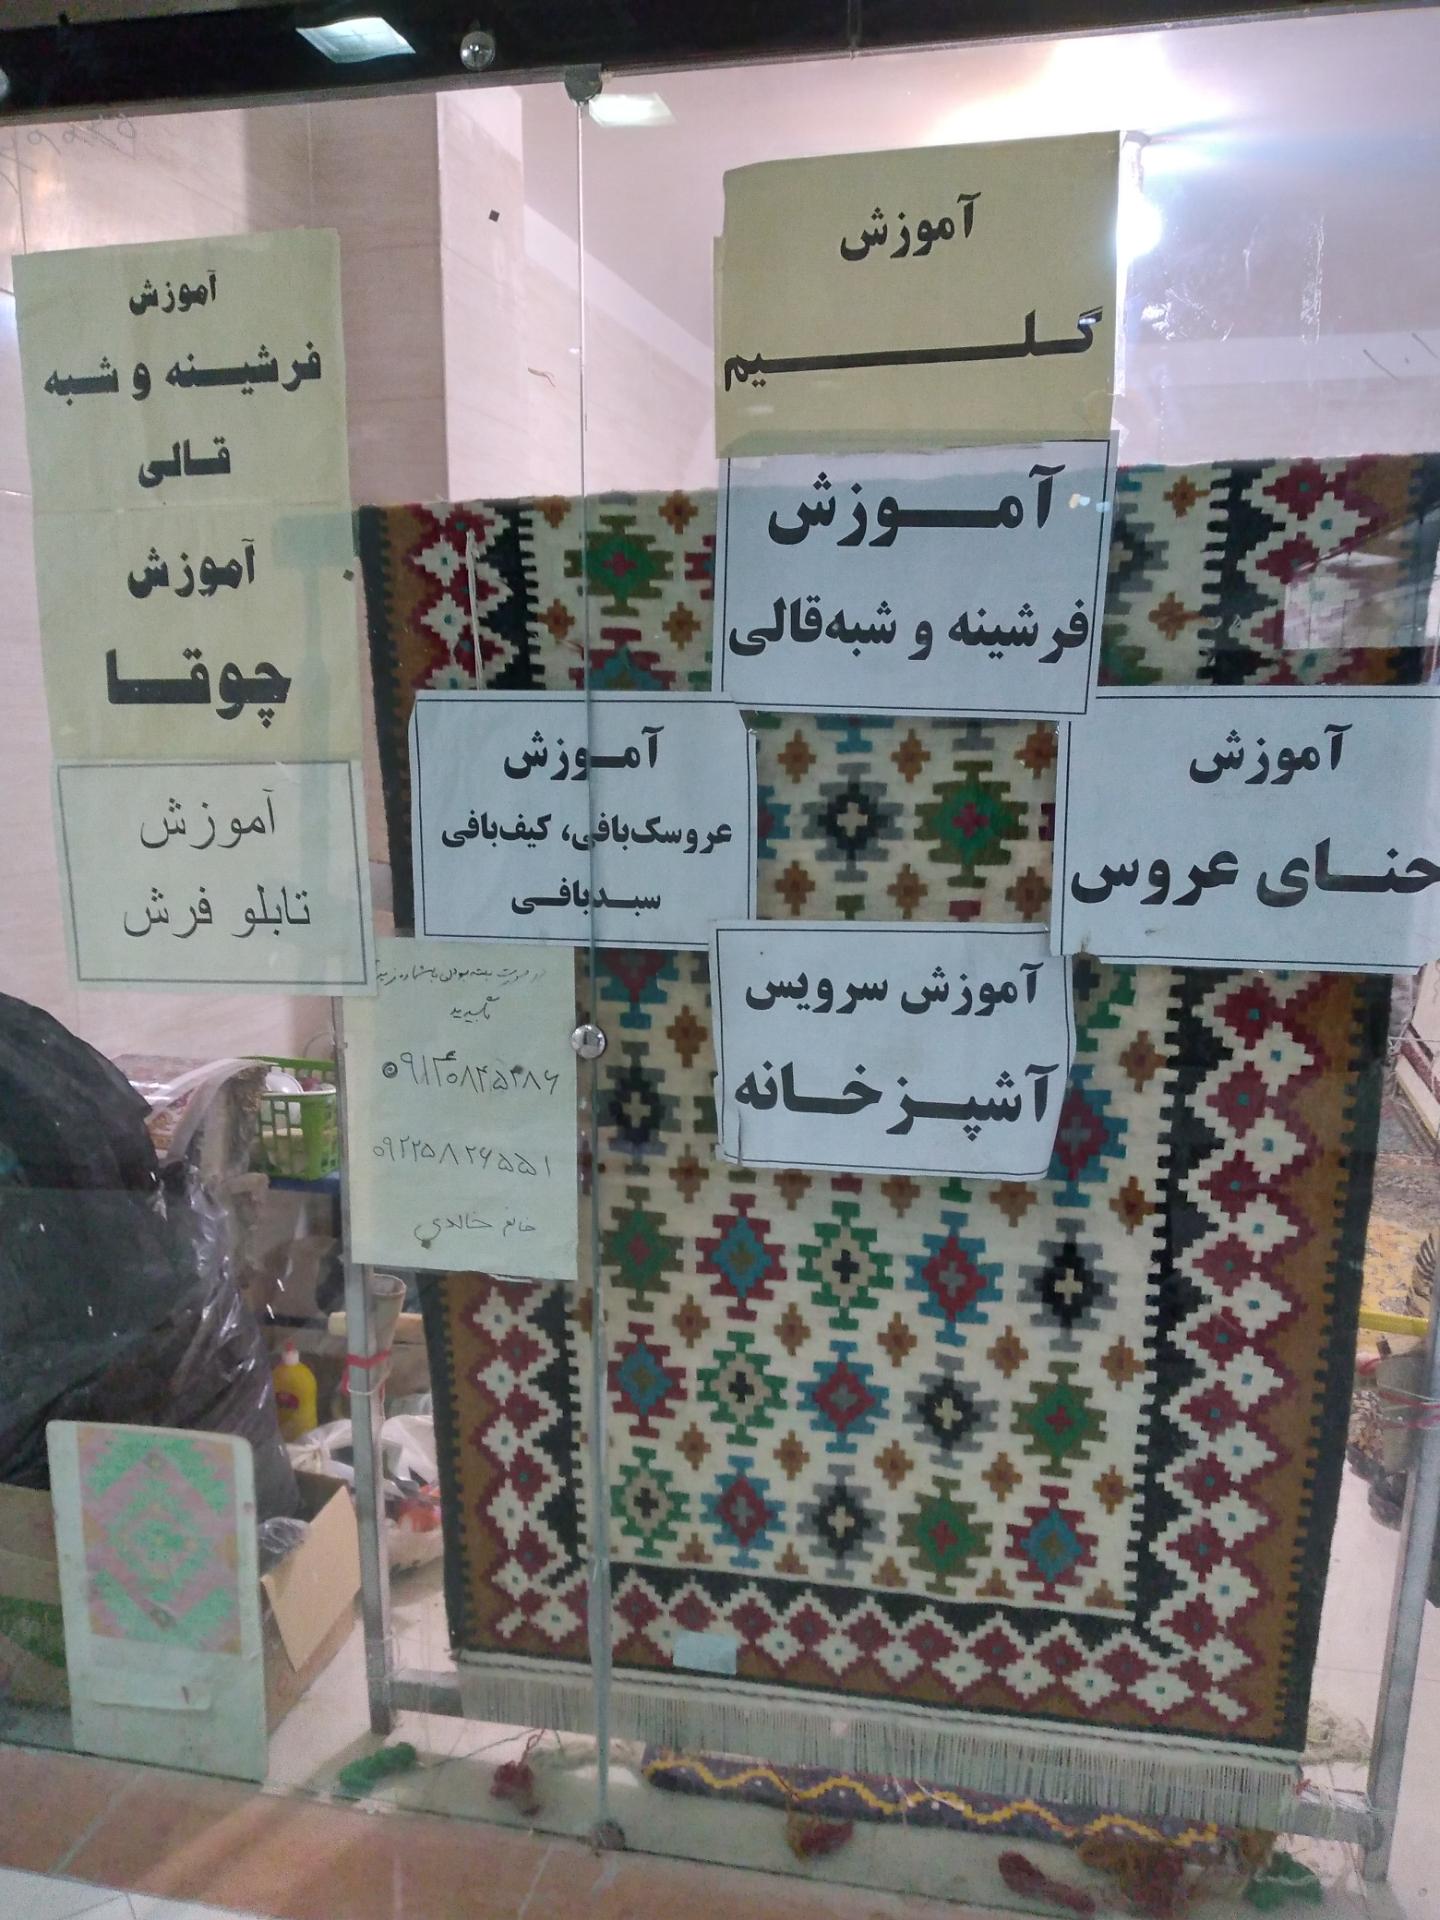 آموزش
گلیم
آموزش
فرشینه و شبه‌قالی
آموزش
فرشینه و شبه
قالی
آموزش
چوقا
آموزش
تابلو فرش
آموزش
عروسک‌بافی، کیف‌بافی
سبدبافی
آموزش
حنای عروس
آموزش سرویس
آشپزخانه
در صورت بسته بودن با شماره زیر
بگیرید
۰۹۲۲۵۸۲۶۵۵۱
خانم خالدی